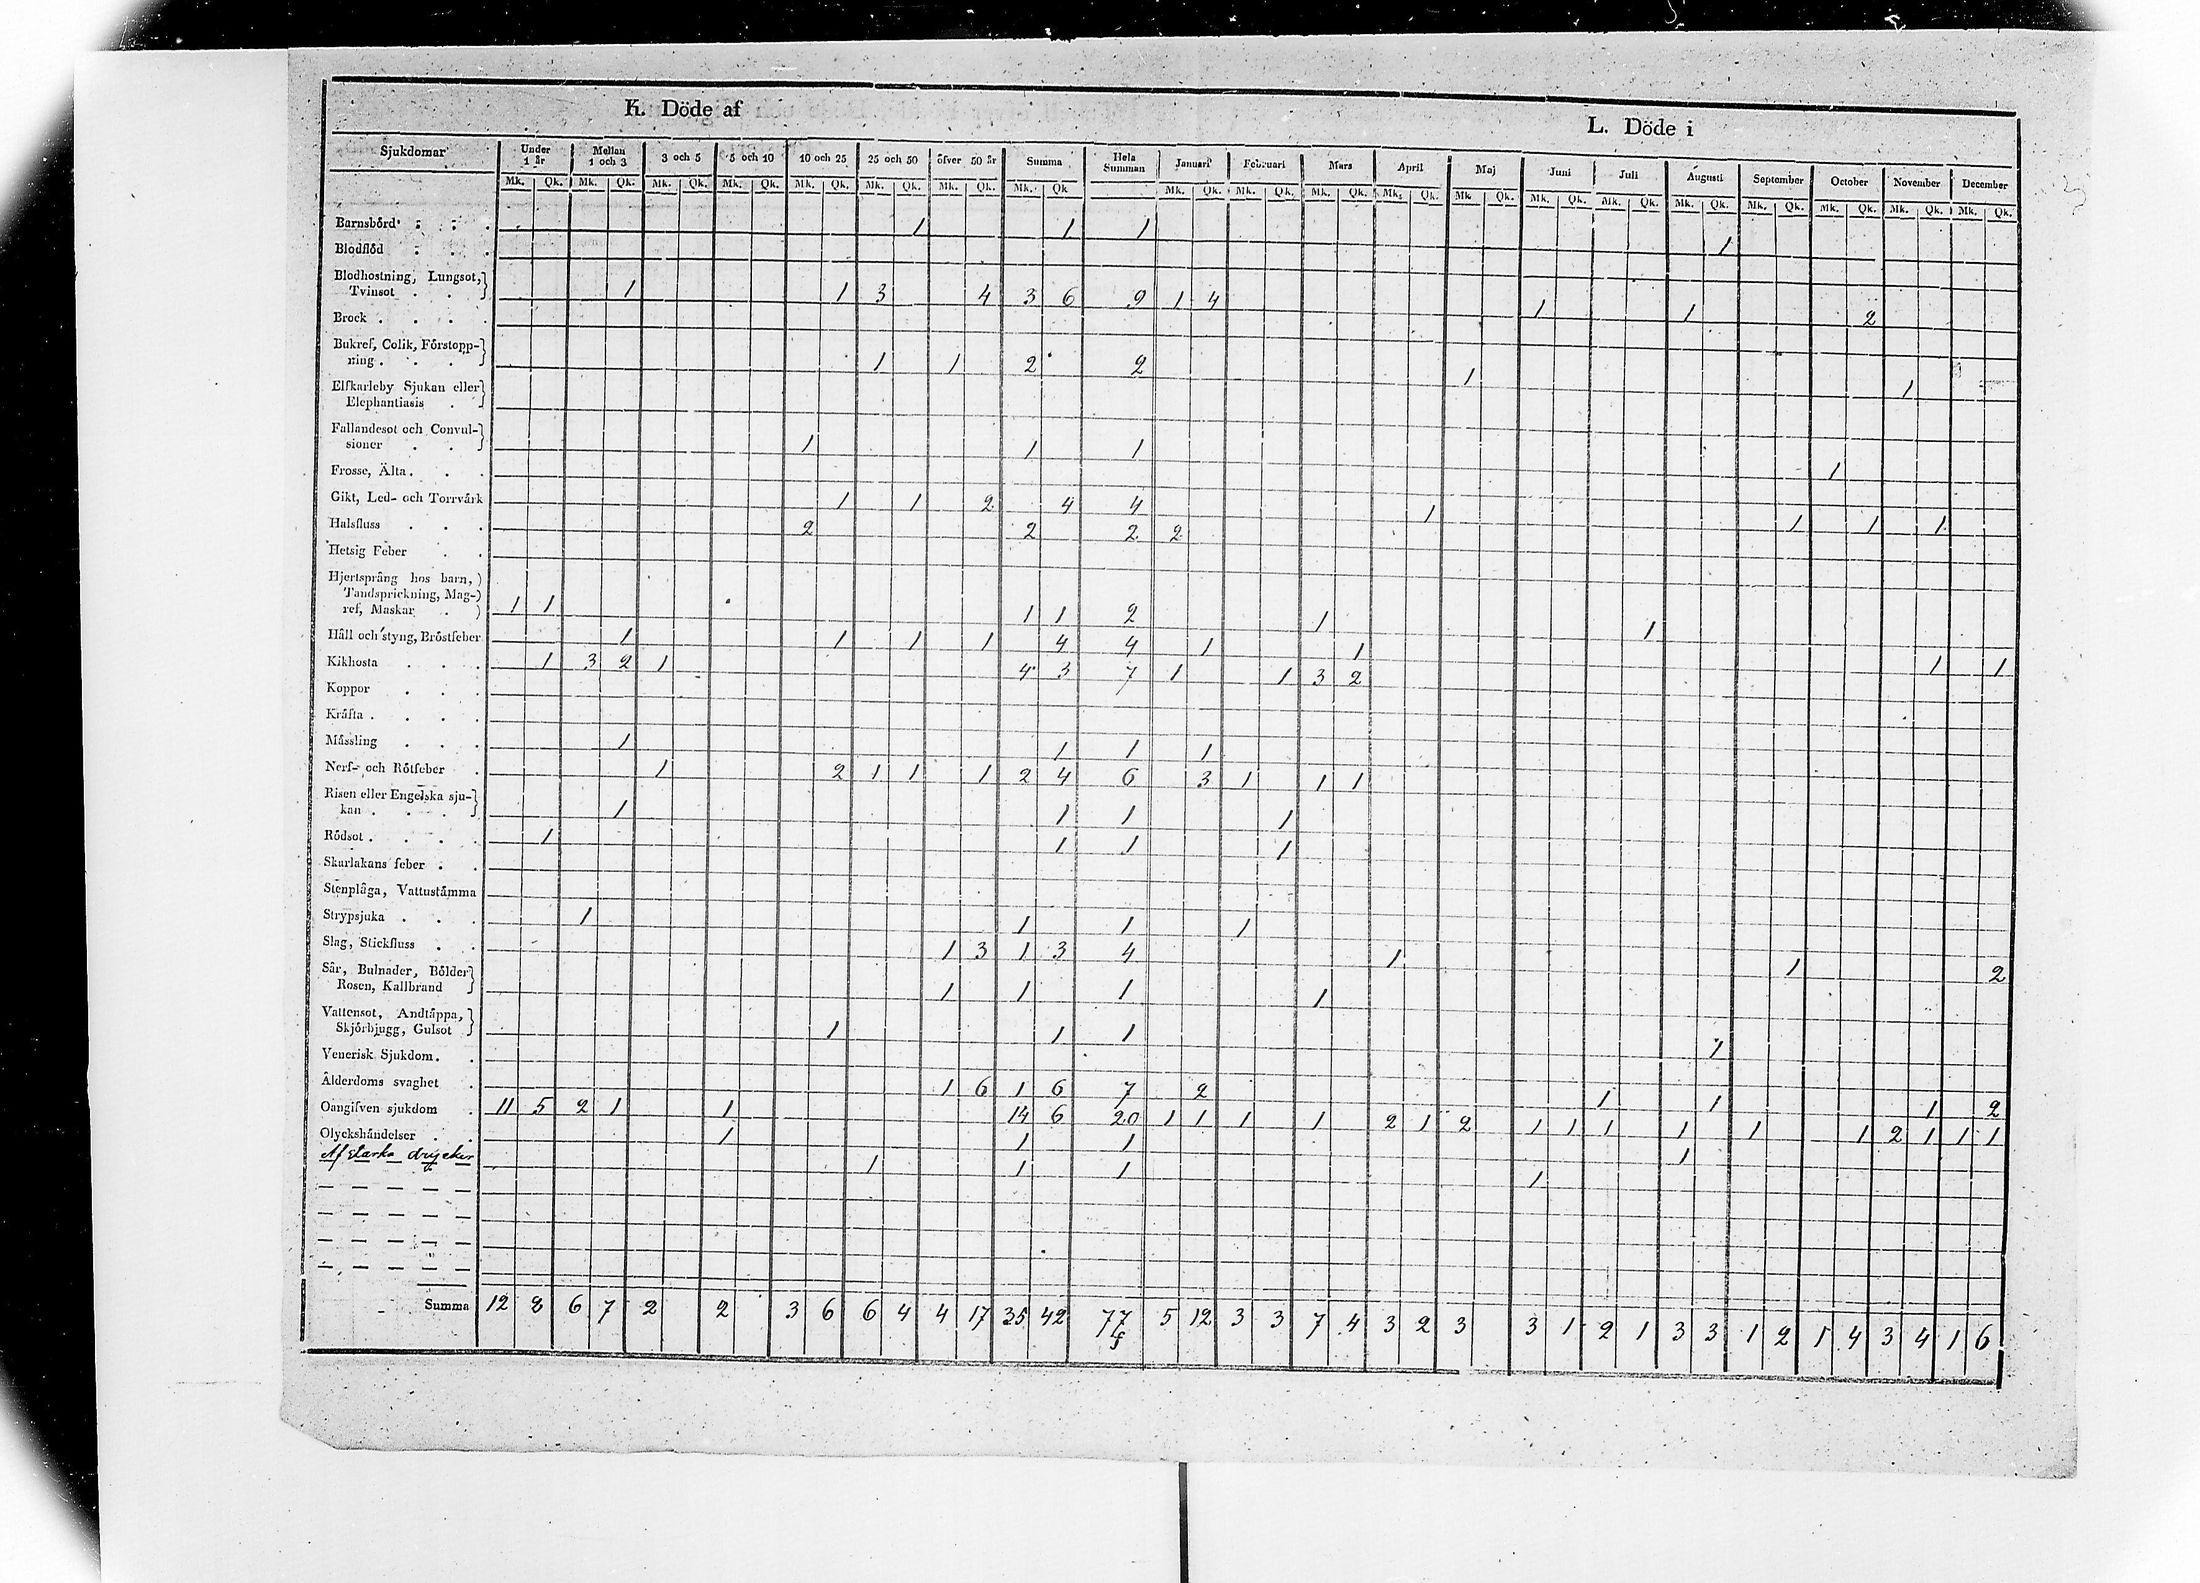 K. Döde af
L. Döde i
Sjukdomar Under 1 år Mellan 1 och 3 3 och 5 5 och 10 10 och 25 25 och 50 öfver 50 år Summa Hela Summan Januari Februari Mars April Maj Juni Juli Augusti September October November December
Mk. Qk. Mk. Qk. Mk. Qk. Mk. Qk. Mk. Qk. Mk. Qk. Mk. Qk. Mk. Qk Mk. Qk. Mk. Qk. Mk. Qk. Mk. Qk. Mk Qk. Mk. Qk. Mk. Qk. Mk. Qk. Mk. Qk. Mk. Qk. Mk. Qk. Mk. Qk.
Barnsbörd 1 1 1 1
Blodflöd
Blodhostning, Lungsot,
Tvinsot 1 1 3 4 3 6 9 1 4 1 1 2
Brock
Bukref, Colik, Förstopp-
ning 1 1 2 2 1 1
Elfkarleby Sjukan eller
Elephantiasis
Fallandesot och Convul-
sioner 1 1 1 1
Frosse, Älta
Gikt, Led- och Torrvärk 1 1 2 4 4 1 1 1 1
Halsfluss 2 2 2 2
Hetsig Feber
Hjertsprång hos barn,
Tandsprickning, Mag-
ref, Maskar 1 1 1 1 2 1 1
Håll och styng, Bröstfeber 1 1 1 1 4 4 1 1 1 1
Kikhosta 1 3 2 1 4 3 7 1 1 3 2
Koppor
Kräfta
Mässling 1 1 1 1
Nerf- och Rötfeber 1 2 1 1 1 2 4 6 3 1 1 1
Risen eller Engelska sju-
kan 1 1 1 1
Rödsot 1 1 1 1
Skarlakans feber
Stenplåga, Vattustämma
Strypsjuka 1 1 1 1
Slag, Stickfluss 1 3 1 3 4 1 1 2
Sår, Bulnader, Bölder
Rosen, Kallbrand 1 1 1 1
Vattensot, Andtäppa,
Skjörbjugg, Gulsot 1 1 1 1
Venerisk Sjukdom
Ålderdoms svaghet 1 6 1 6 7 2 1 1 1 2
Oangifven sjukdom 11 5 2 1 1 14 6 20 1 1 1 1 2 1 2 1 1 1 1 1 1 2 1 1 1
Olyckshändelser 1 1 1 1
Af starka drycker 1 1 1 1
Summa 12 8 6 7 2 2 3 6 6 4 4 17 35 42 77 5 12 3 3 7 4 3 2 3 3 1 2 1 3 3 1 2 1 4 3 4 1 6